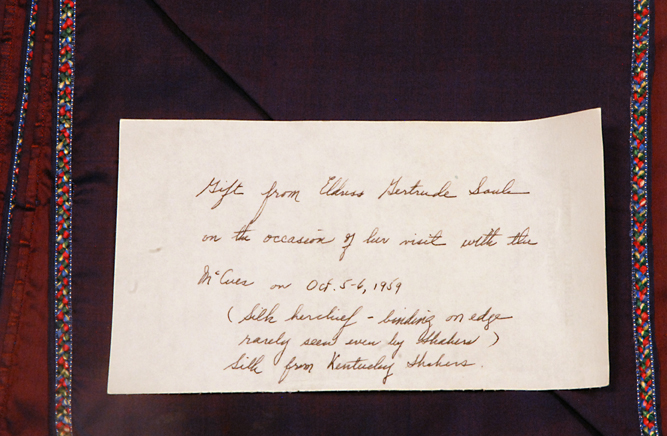 Gift from Eldress Gertrude Soule
on the occasion of her visit with the
McCues on Oct. 5-6, 1959
(Silk kerchief - binding on edge
rarely seen even by Shakers)
Silk from Kentucky Shakers.